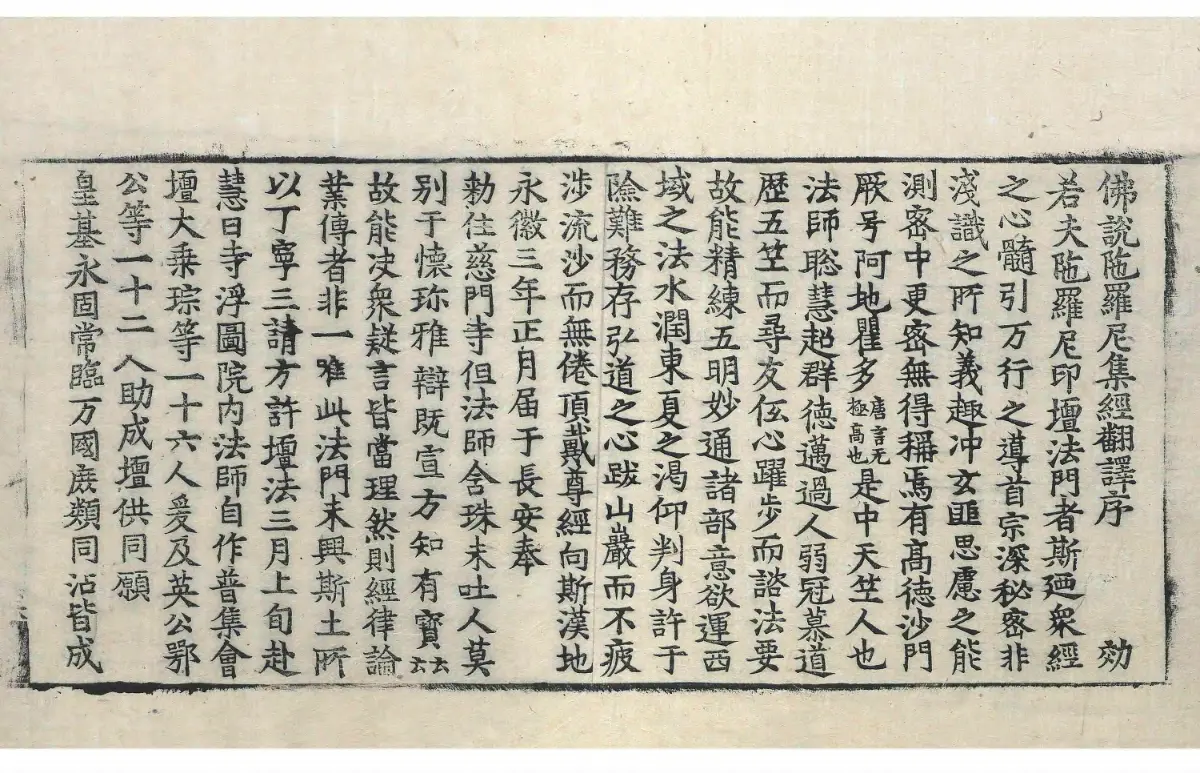 佛說陁羅尼集經翻譯序 効
若夫陁羅尼印壇法門者斯廼衆經
之心髓引万行之導首宗深秘密非
淺識之所知義趣沖玄匪思慮之能
測密中更密無得稱焉有髙徳沙門
厥号阿地瞿多唐言无極高也是中天笁人也
法師聡慧超群徳邁過人弱冠慕道
歴五笁而尋友伍心躍步而諮法要
故能精練五明妙通諸部意欲運西
域之法水潤東夏之渴仰判身許于
險難務存弘道之心跋山巖而不疲
渉流沙而無倦頂戴尊經向斯漢地
永徽三年正月届于長安奉
勑住慈門寺但法師含珠未吐人莫
别于懷珎雅辯既宣方知有寳云云
故能决衆疑言皆當理然則經律論
業傳者非一唯此法門未興斯土所
以丁寧三請方許壇法三月上旬赴
慧日寺浮圖院内法師自作普集會
壇大乗琮等一十六人爰及英公鄂
公等一十二人助成壇供同願
皇基永固常臨万國庻類同沾皆成